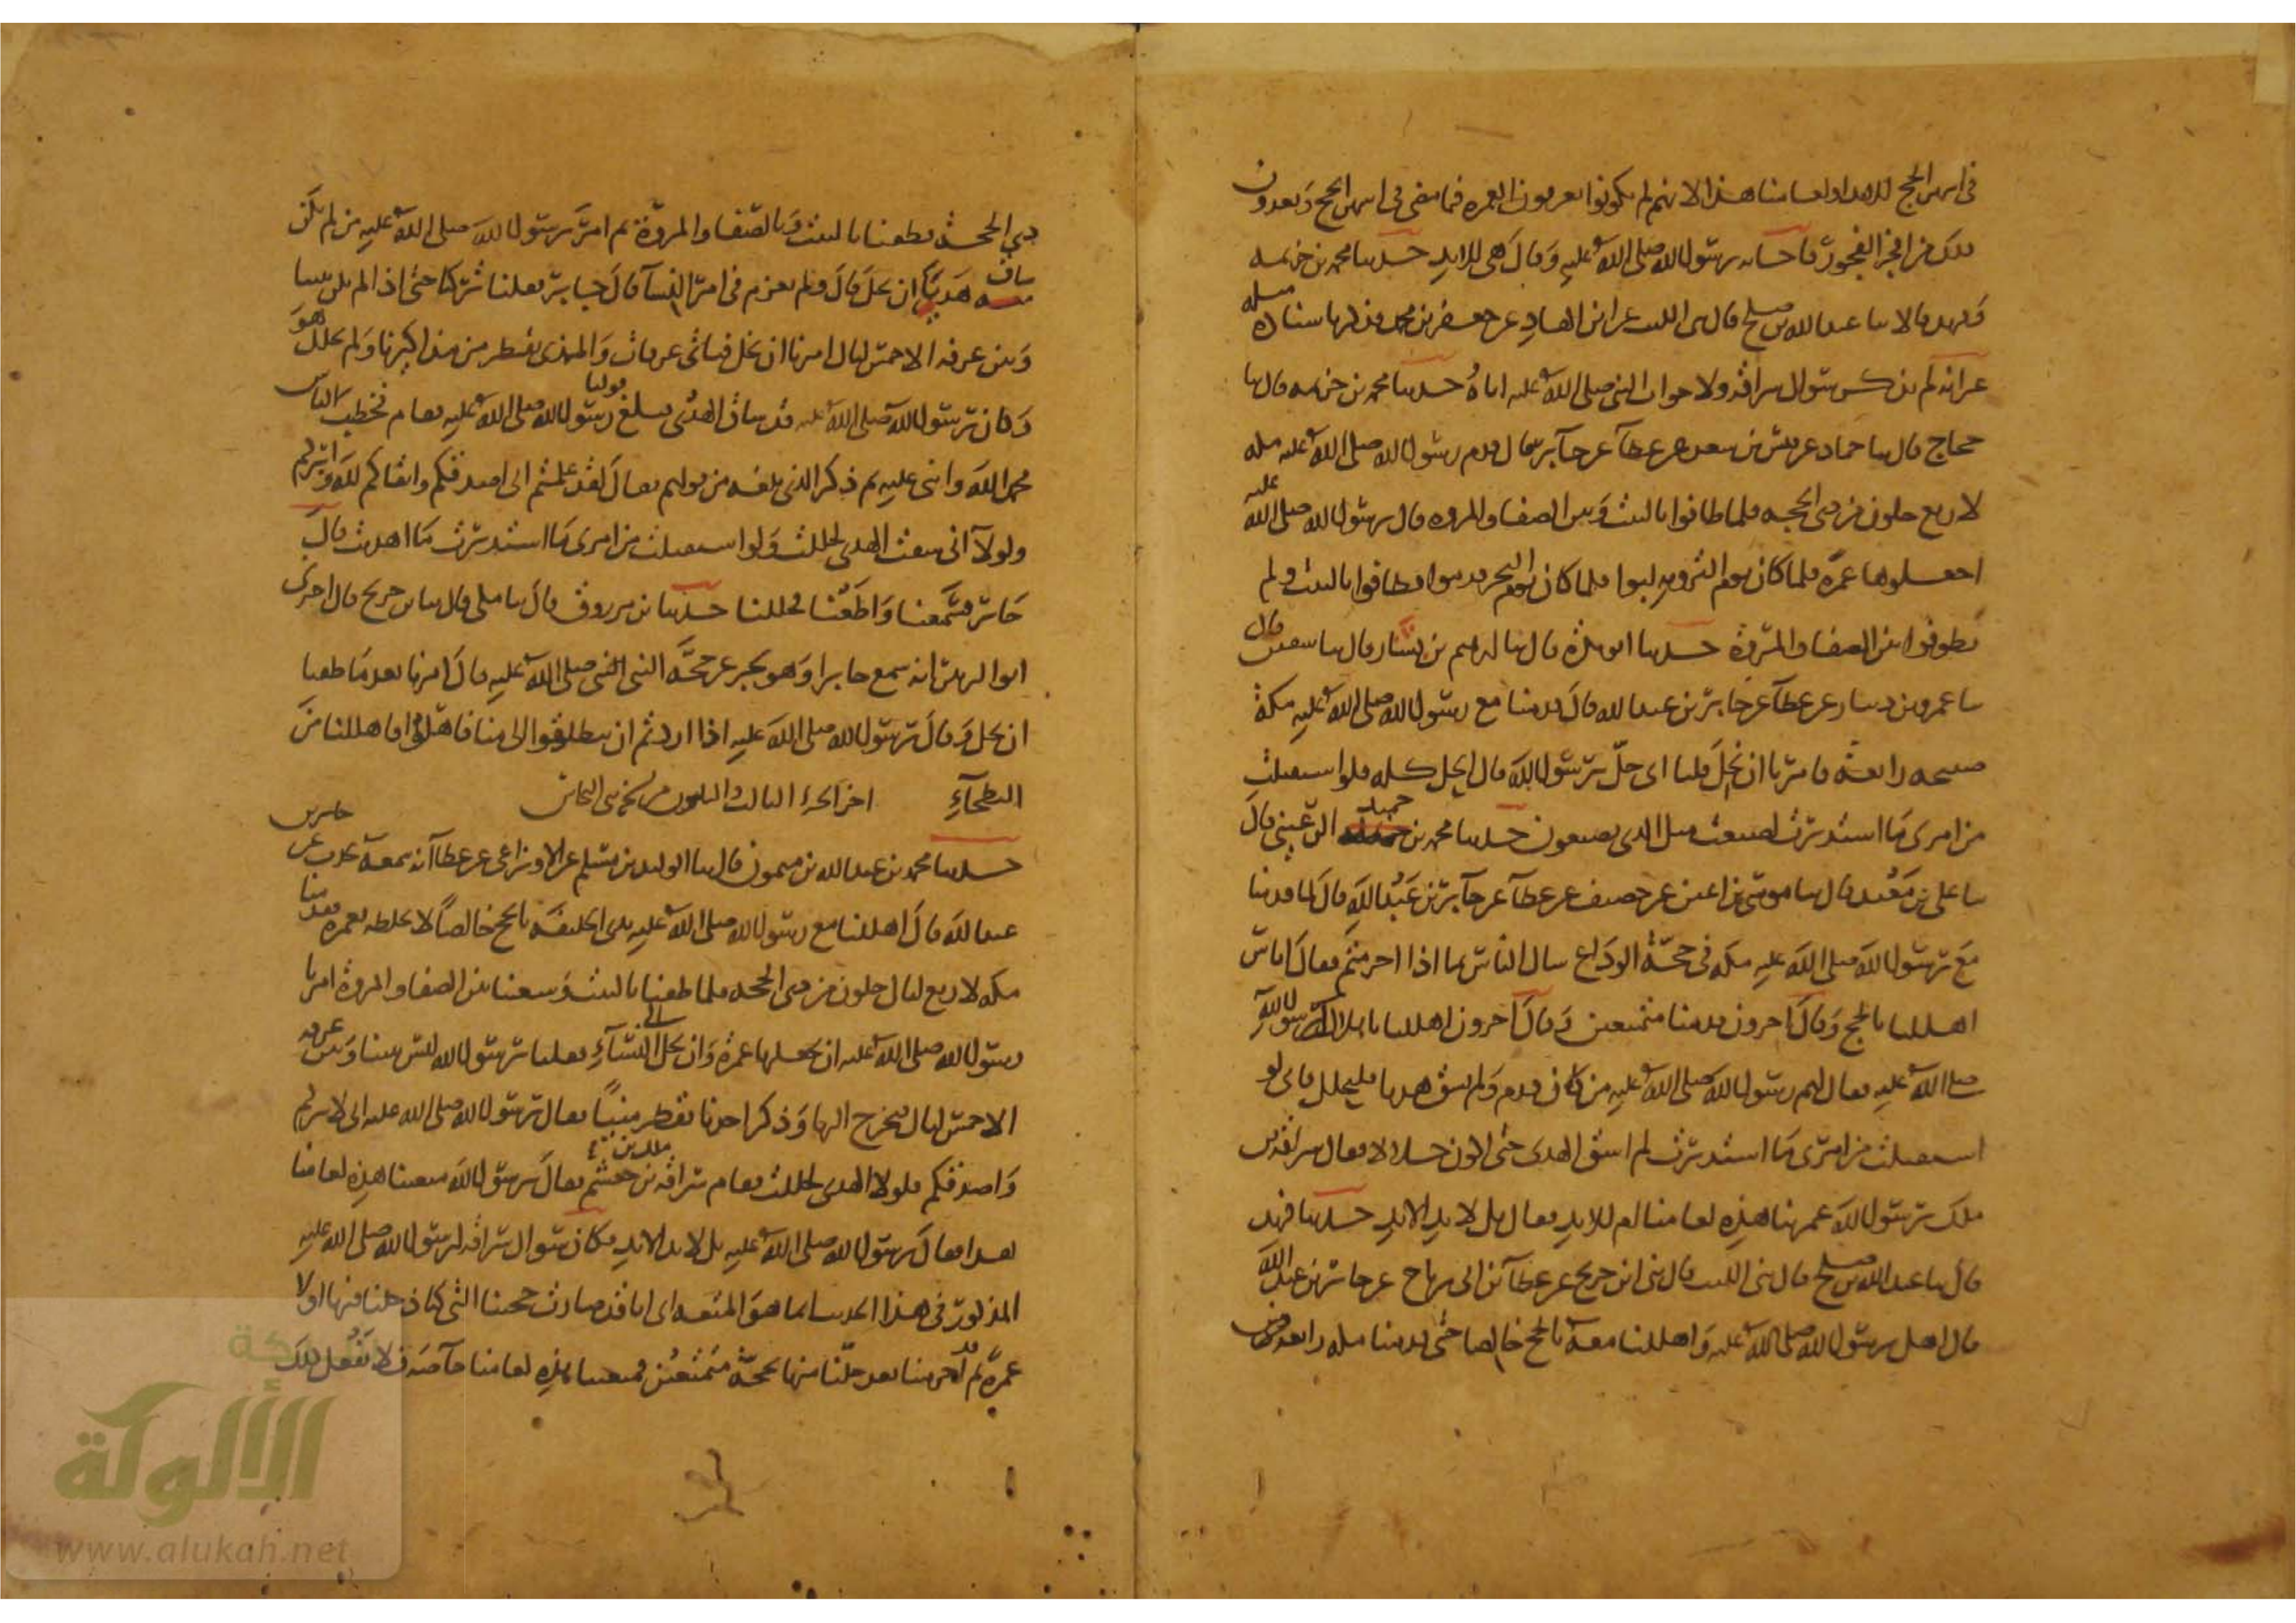 في اشهر الحج للابد او لعامنا هذا لانهم لم يكونوا يعرفون العمرة فيما مضى في اشهر الحج ويعدون
ذلك من افجر الفجور فاجابه رسول الله صلى الله عليه وقال هي للابد حدثنا محمد بن خزيمة
وفهد قالا ثنا عبد الله بن صلح قال ثنى الليث عن ابن الهاد عن جعفر بن محمد فذكر باسناده مثله
غير انه لم يذكر سؤال سراقة ولا جواب النبي صلى الله عليه اياه حدثنا محمد بن خزيمة قال ثنا
حجاج قال ثنا حماد عن قيس بن سعد عن عطآ عن جآبر قال قدم رسول الله صلى الله عليه مكة
لاربع خلون من ذي الحجة فلما طافوا بالبيت وبين الصفا والمروة قال رسول الله صلى الله عليه
اجعلوها عمرة فلما كان يوم التروية لبوا فلما كان يوم النحر قدموا فطافوا بالبيت ولم
يطوفوا بين الصفا والمروة حدثنا ابو بكرة قال ثنا ابرهيم بن بشار قال ثنا سفين قال
ثنا عمرو بن دينار عن عطآ عن جابر بن عبد الله قال قدمنا مع رسول الله صلى الله عليه مكة
صبيحة رابعة فامرنا ان نحل قلنا اي حل يرسول الله قال الحل كله فلو استقبلت
من امري ما استدبرت لصنعت مثل الذي تصنعون حدثنا محمد بن حميد الرعيني قال
ثنا علي بن معبد قال ثنا موسى بن اعين عن خصيف عن عطآ عن جآبر بن عبد الله قال لما قدمنا
مع رسول الله صلى الله عليه مكة في حجة الوداع سال الناس بما اذا احرمتم فقال اناس
اهللنا بالحج وقال آخرون قدمنا متمتعين وقال آخرون اهللنا باهلالك يرسول الله
صلى الله عليه فقال لهم رسول الله صلى الله عليه من كان قدم ولم يسق هديا فليحلل فاني لو
استقبلت من امري ما استدبرت لم اسق الهدي حتى اكون حلالا فقال سراقة بن
ملك يرسول الله عمرتنا هذه لعامنا ام للابد فقال بل لابد الابد حدثنا فهد
قال ثنا عبد الله بن صلح قال ثنى الليث قال ثنى ابن جريج عن عطآ بن ابي رباح عن جابر بن عبد الله
قال اهل رسول الله صلى الله عليه واهللنا معه بالحج خالصا حتى قدمنا مكة رابعة من
ذي الحجة فطفنا بالبيت وبالصفا والمروة ثم امر رسول الله صلى الله عليه من لم يكن
ساق هديا ان يحل قال ولم يعزم في امر النسآ قال جابر فقلنا تركنا حتى اذا لم يكن بيننا
وبين عرفة الا خمس ليال امرنا ان نحل فناتي عرفات والمذي يقطر من مذاكيرنا ولم يحلل هو
وكان رسول الله صلى الله عليه قد ساق الهدي فبلغ قولنا رسول الله صلى الله عليه فقام فخطب الناس
فحمد الله واثنى عليه ثم ذكر الذي بلغه من قولهم فقال لقد علمتم اني اصدقكم واتقاكم لله وابركم
ولولا اني سقت الهدي لحللت ولو استقبلت من امري ما استدبرت ما اهديت قال
جابر فسمعنا واطعنا فحللنا حدثنا بن مرزوق قال ثنا مكي قال ثنا بن جريج قال اخبرني
ابو الزبير انه سمع جابرا وهو يخبر عن حجة النبي صلى الله عليه قال امرنا بعد ما طفنا
ان نحل وقال رسول الله صلى الله عليه اذا اردتم ان تنطلقوا الى منا فاهلوا فاهللنا من
البطحآء اخر الجزء الثالث والثلثون من تجزئي النحاس
حدثنا محمد بن عبد الله بن ميمون قال ثنا الوليد بن مسلم عن الاوزاعي عن عطآ انه سمعه يحدث عن جابر بن
عبد الله قال اهللنا مع رسول الله صلى الله عليه بذي الحليفة بالحج خالصا لا نخلطه بعمرة فقدمنا
مكة لاربع ليال خلون من ذي الحجة فلما طفنا بالبيت وسعينا بين الصفا والمروة امرنا
رسول الله صلى الله عليه ان نجعلها عمرة وان نحل الى النسآء فقلنا يرسول الله ليس بيننا وبين عرفة
الا خمس ليال فنخرج اليها وذكر احدنا يقطر منيا فقال رسول الله صلى الله عليه اني لابركم
واصدقكم فلولا الهدي لحللت فقام سراقة بن ملك بن جعشم فقال يرسول الله متعتنا هذه لعامنا
هذا ام للابد فقال رسول الله صلى الله عليه بل لابد الابد فكان سؤال سراقة لرسول الله صلى الله عليه
المذكور في هذا الحديث انما هو المتعة اي انا قد صارت حجتنا التي كنا دخلنا فيها اولا
عمرة ثم احرمنا بعد حلنا منها بحجة متمتعين فمتعتنا هذه لعامنا خاصة فلا نفعل ذلك
الألوكة
www.alukah.net